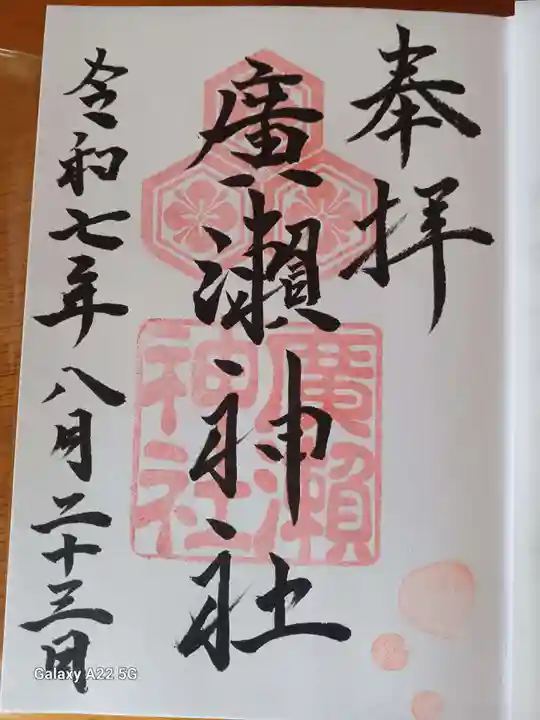 奉拝
廣瀬神社
令和七年八月二十三日
廣瀬
神社
Galaxy A22 5G